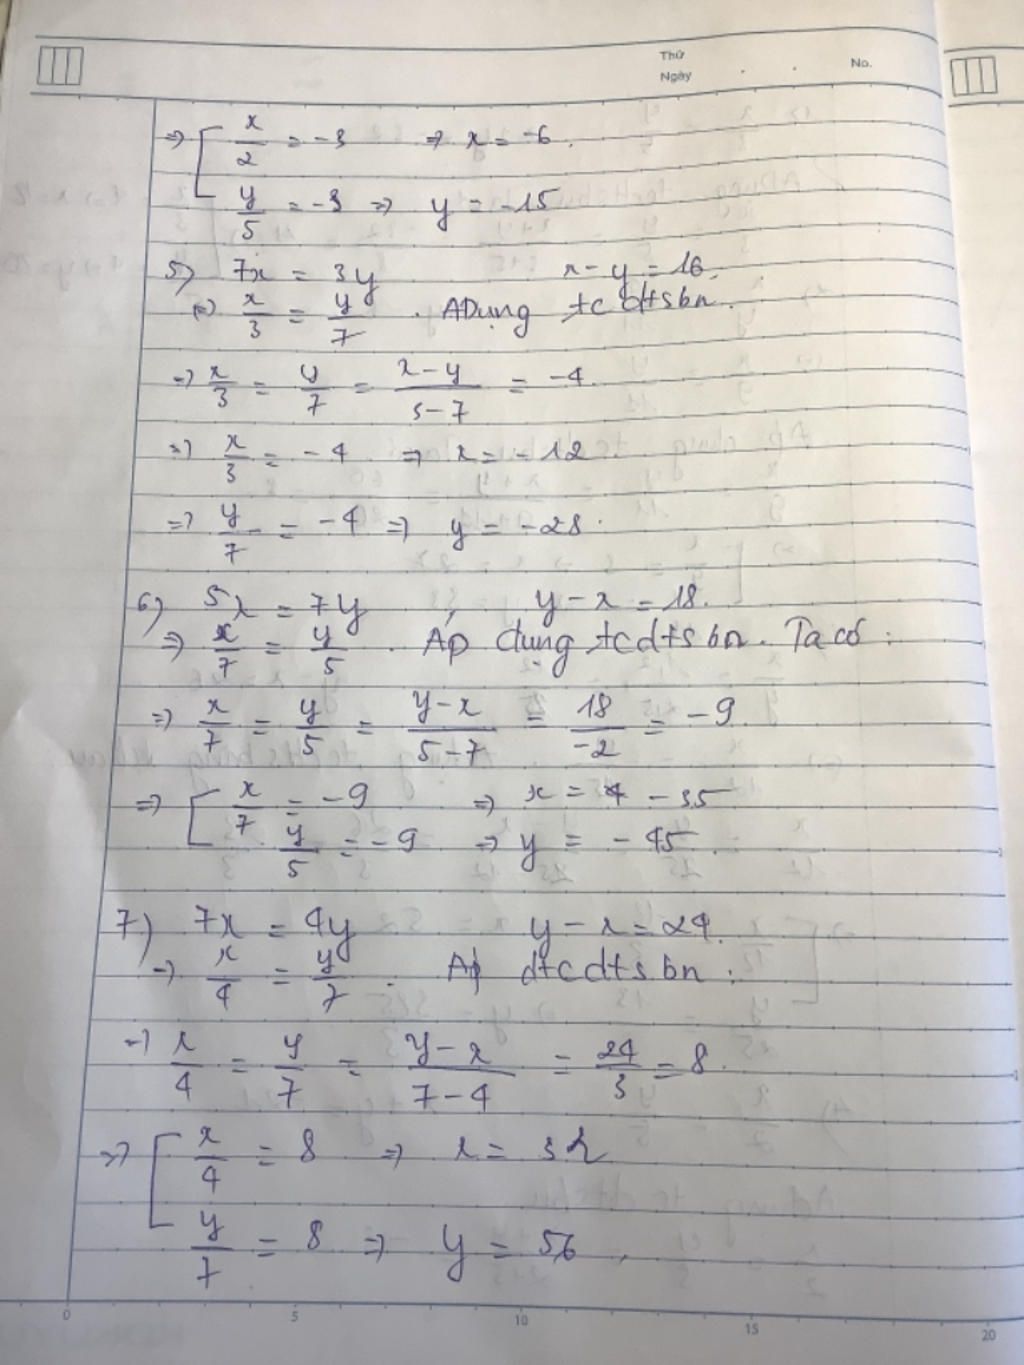 Thứ
Ngày . . No.
=> [ x/2 = -3 => x = -6.
y/5 = -3 => y = -15
5) 7x = 3y x - y = 16.
(=) x/3 = y/7 . ADụng tc dtsbn.
=> x/3 = y/7 = x-y/3-7 = -4
=> x/3 = -4 => x = -12
=> y/7 = -4 => y = -28.
6) 5x = 7y , y - x = 18.
=> x/7 = y/5 . Áp dụng tcdtsbn. Ta có :
=> x/7 = y/5 = y-x/5-7 = 18/-2 = -9
=> [ x/7 = -9 => x = -35
y/5 = -9 => y = -45
7) 7x = 4y y - x = 24.
=> x/4 = y/7 . Áp dtcdtsbn :
=> x/4 = y/7 = y-x/7-4 = 24/3 = 8.
=> [ x/4 = 8 => x = 32
y/7 = 8 => y = 56.
0 5 10 15 20